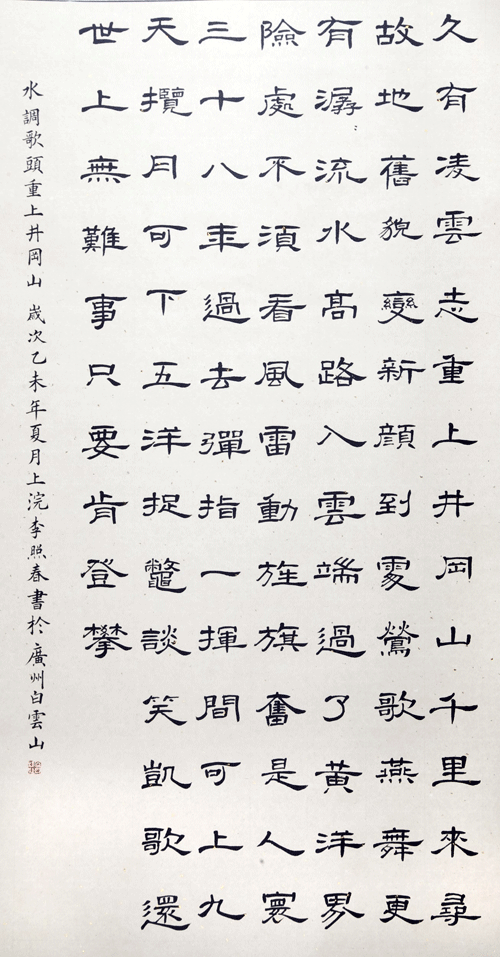 久有凌雲志重上井岡山千里來尋
故地舊貌變新顏到處鶯歌燕舞更
有潺流水高路入雲端過了黃洋界
險處不須看風雷動旌旗奮是人寰
三十八年過去彈指一揮間可上九
天攬月可下五洋捉鱉談笑凱歌還
世上無難事只要肯登攀
水調歌頭重上井岡山 歲次乙未年夏月上浣李照春書於廣州白雲山